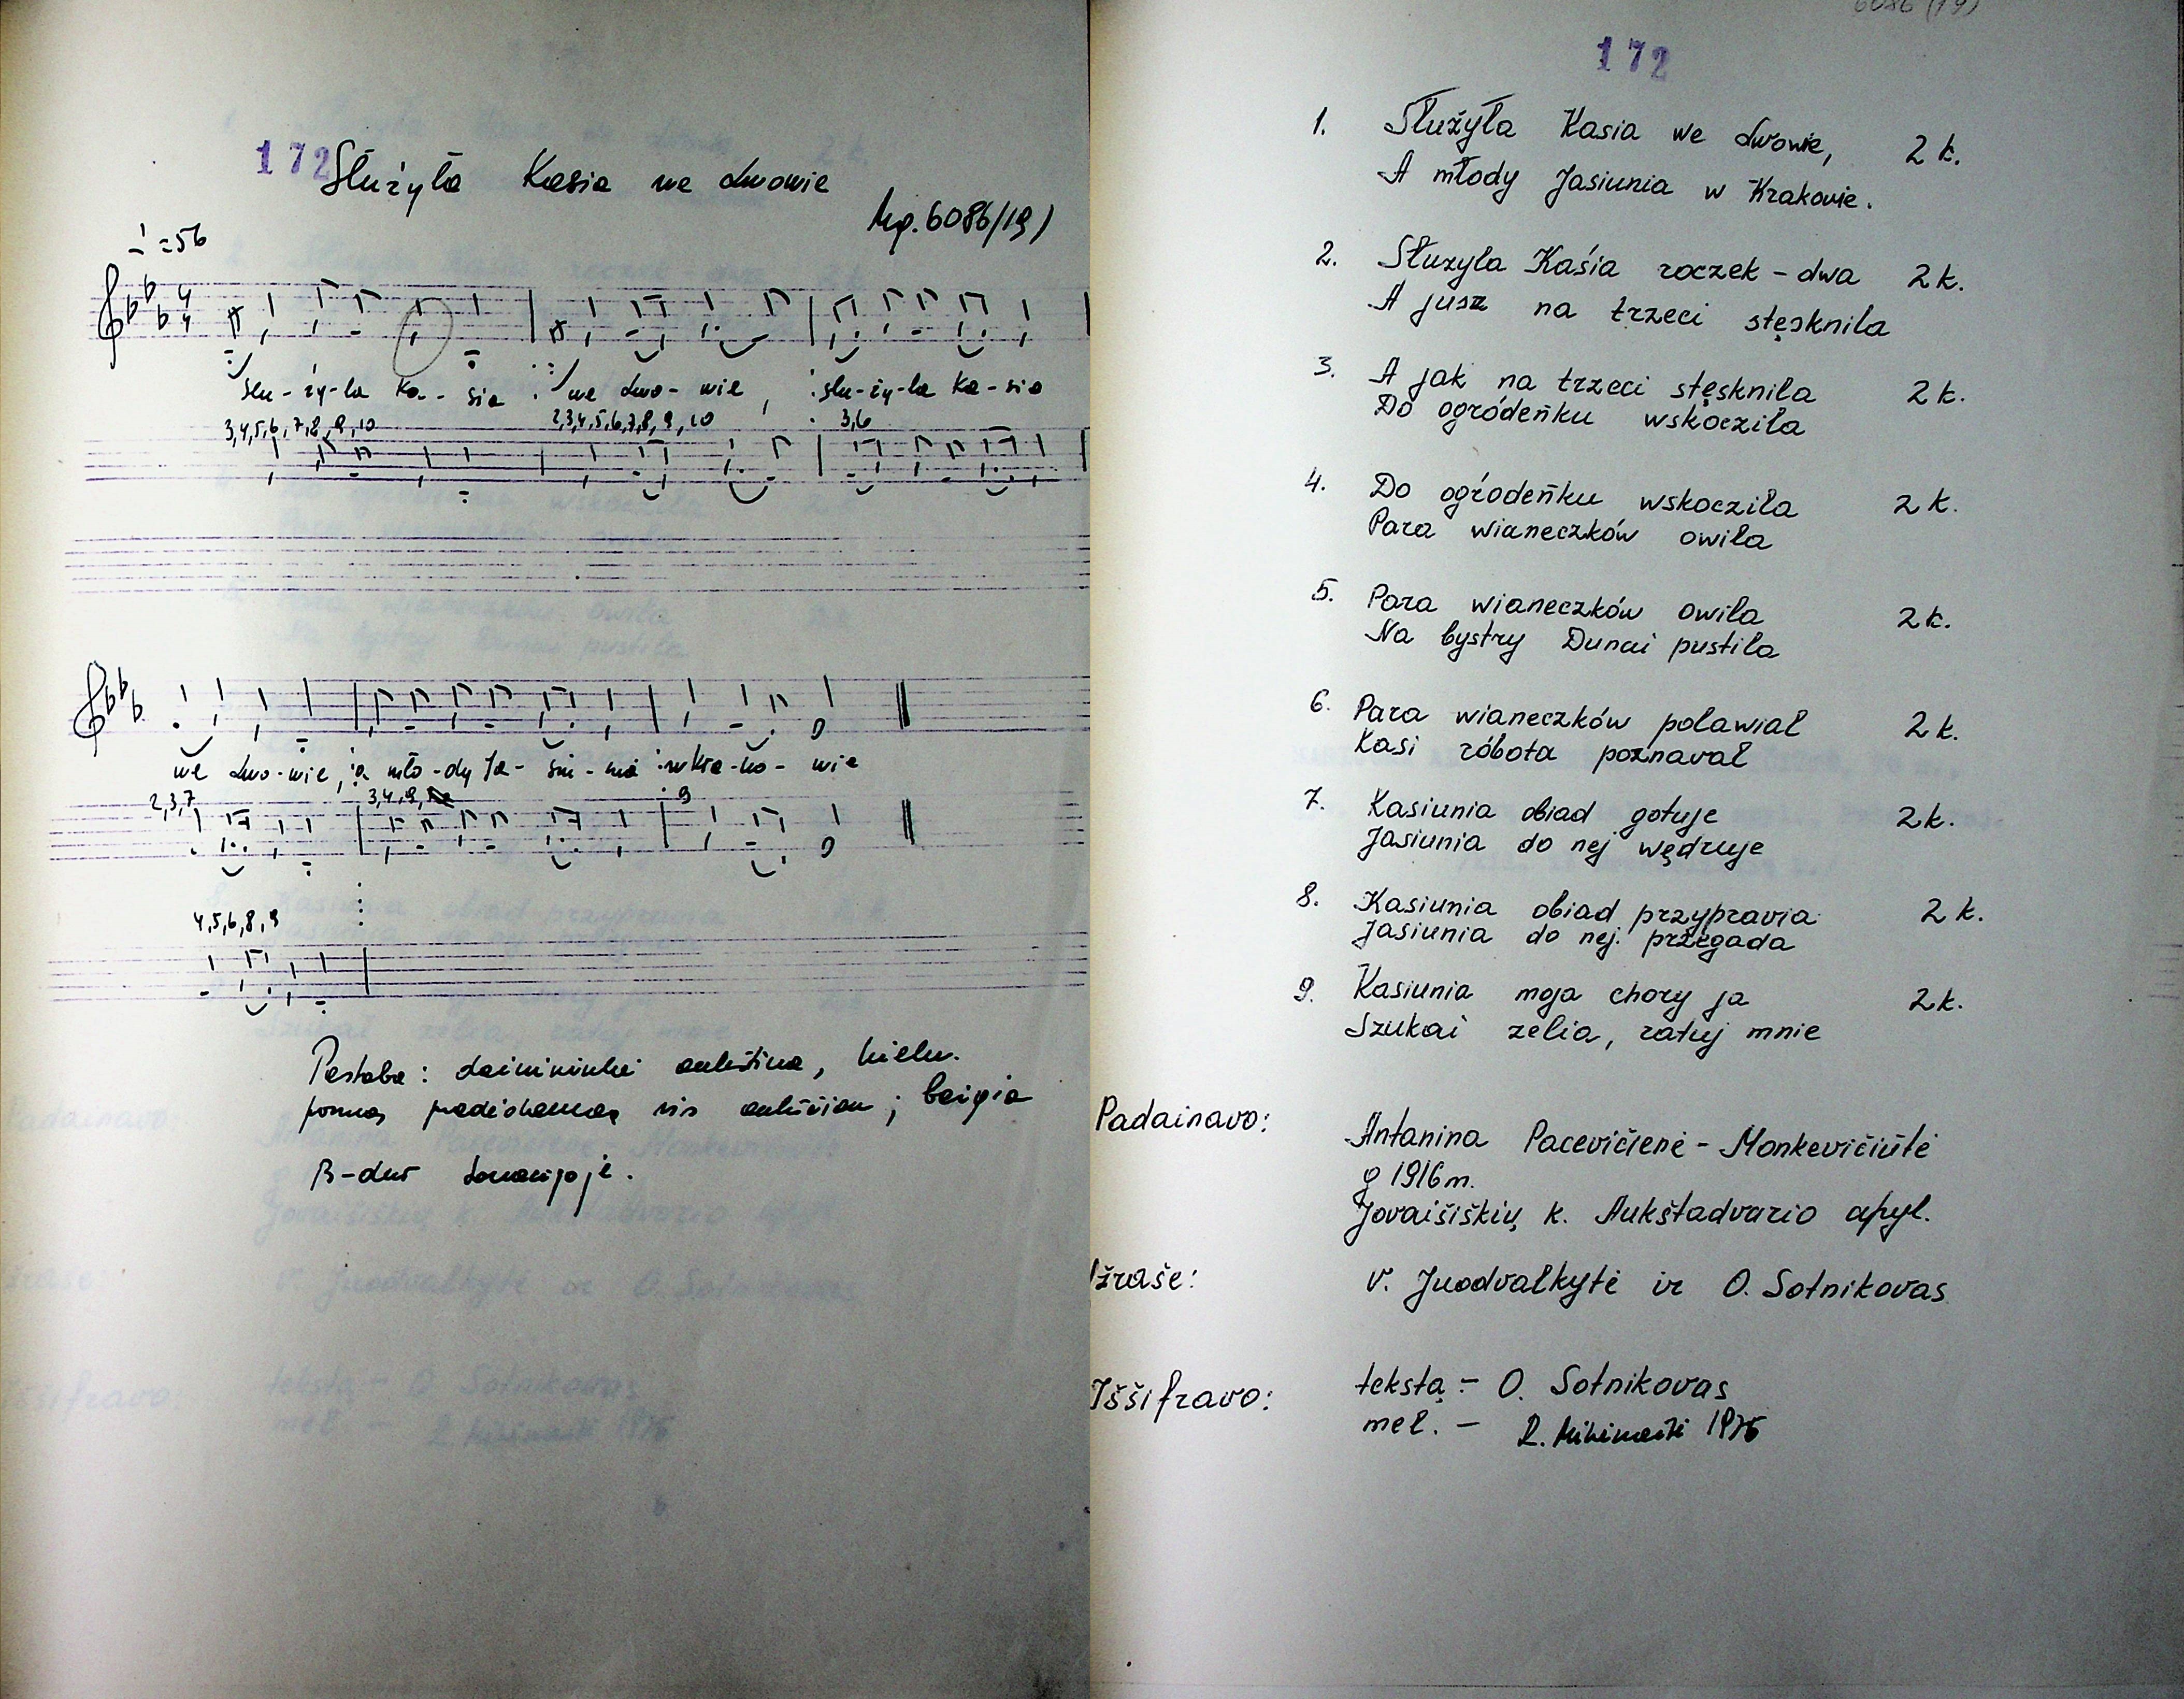 172 Służyła Kasia we Lwowie
Mg. 6086/19)
♩=56
Słu-ży-ła Ka-sia we Lwo-wie, słu-ży-ła Ka-sia
3,4,5,6,7,8,9,10 2,3,4,5,6,7,8,9,10 3,6
we Lwo-wie, a mło-dy Ja-siu-nia w Kra-ko-wie
2,3,7 3,4,9, 9
4,5,6,8,9
Pastaba: dainininkei aukština, kiekv.
posmą pradėdama vis aukščiau; baigia
B-dur tonacijoje.
6086 (19)
172
1. Służyła Kasia we Lwowie, 2 k.
A młody Jasiunia w Krakowie.
2. Służyla Kaśia roczek - dwa 2 k.
A jusz na trzeci stęsknila
3. A jak na trzeci stęsknila 2 k.
Do ogródeńku wskocziła
4. Do ogródeńku wskocziła 2 k.
Para wianeczków owiła
5. Para wianeczków owila 2 k.
Na bystry Dunai pustila
6. Para wianeczków polawial 2 k.
Kasi róbota poznaval
7. Kasiunia obiad gotuje 2 k.
Jasiunia do nej wędruje
8. Kasiunia obiad przypravia 2 k.
Jasiunia do nej. przegada
9. Kasiunia moja chory ja 2 k.
Szukai zelia, ratuj mnie
Padainavo: Antanina Pacevičienė - Monkevičiūtė
g 1916 m.
Jovaišiškių k. Aukštadvario apyl.
Užraše: V. Juodvalkytė ir O. Sotnikovas
Iššifravo: tekstą - O. Sotnikovas
mel. - 1976